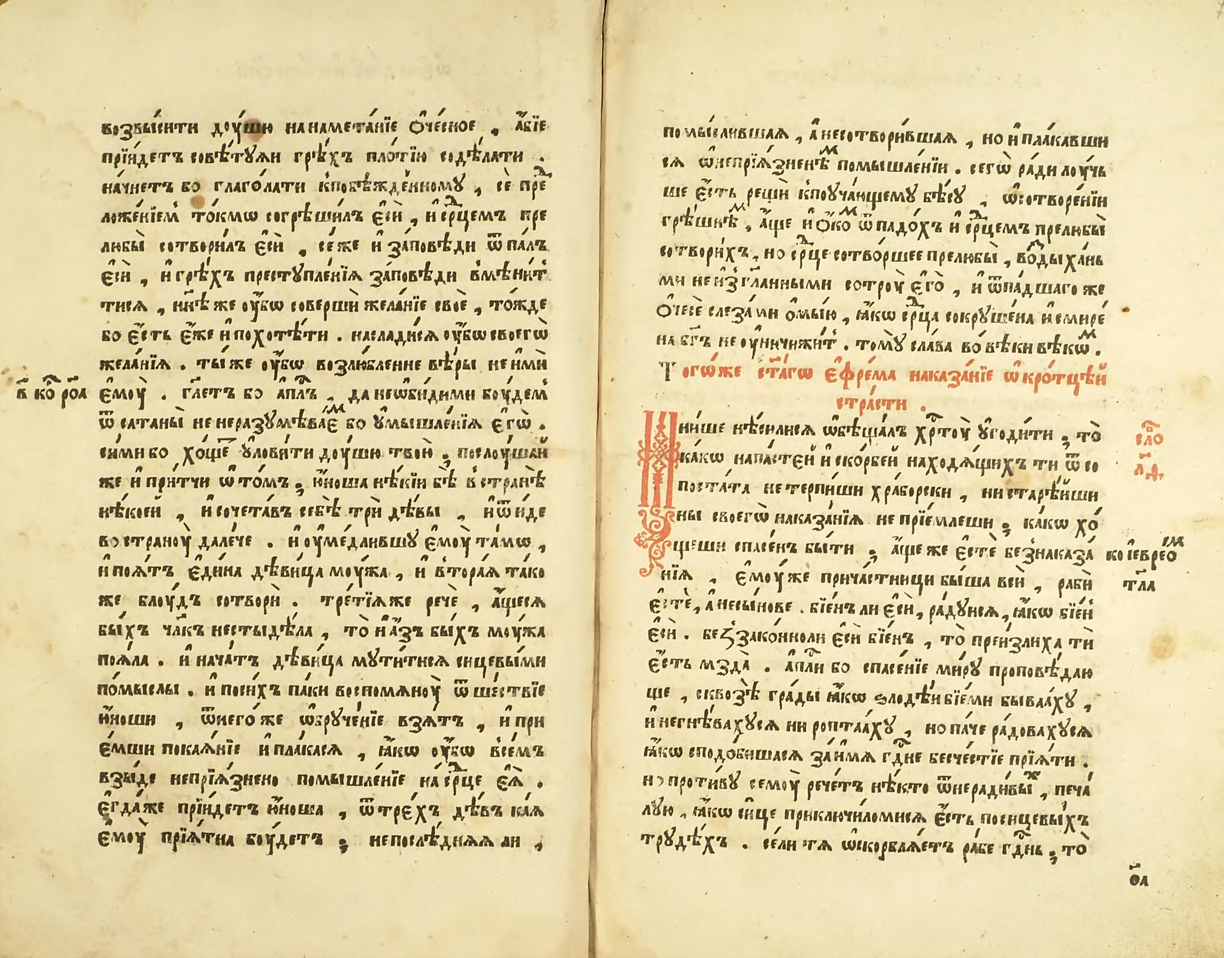 возвы́сити доу́шю нанаметанїе ѻ́чесное , а҆́бїе
прїи́детъ совѣ́туѧи грѣ́хъ пло́тїю содѣ́лати .
на́чнетъ бо глаго́лати кпобѣжде́нному , се́ пре
ложе́нїемⸯ то́кмѡ согрѣши́лъ є҆сѝ , и҆ срⷣцемъ пре
любы̀ сотвори́лъ є҆сѝ , се́же и҆ за́повѣди ѿпа́лъ
є҆сѝ , и҆грѣ́хъ преступле́нїѧ за́повѣди вмѣни́т
тисѧ , нн҃ѣже ѹ҆́бѡ совершѝ жела́нїе своѐ , то́жде
бо є҆́сть є҆́же и҆похотѣ́ти . насладисѧ ѹ҆́бѡ своегѡ̀
жела́нїѧ . ты́же ѹ҆́бѡ возлю́бленне вѣ́ры не и҆мѝ
в҃ ко рⷪ҇ роа
є҆моу̀ . гл҃етъ бо а҆пⷭ҇лъ , да неѡби́дими боу́демⸯ
ѿ сатаны̀ не неразумѣ́ваеⷨ бо ѹ҆мышле́нїѧ є҆гѡ̀ .
си́ми бо хо́щеⷮ ѹ҆лови́ти доу́шу твою̀ ; послоу́шай
же и҆ при́тчи ѡ то́мъ ; ю҆́ноша нѣ́кїи бѣ̀ встранѣ̀
нѣ́коей , и҆сочета́въ себѣ̀ трѝ дѣ́вы , и҆ѿи́де
востраноу̀ дале́че . и҆ ѹ҆ме́длившу є҆моу̀ та́мѡ ,
и҆ поѧ́тъ є҆ди́на дѣви́ца моу́жа , и҆ вто́раѧ та́ко
же блоу́дъ сотворѝ . тре́тїѧже речѐ , а҆́щесѧ
бы́хъ чл҃къ нестыдѣ́ла , то̀ и҆ а҆́зъ бы́хъ моу́жа
поѧ́ла . и҆ нача́тъ дѣви́ца мути́тисѧ сицевы́ми
по́мыслы . и҆ поси́хъ па́ки воспомѧноу̀ ѿше́ствїе
ю҆́ноши , ѿнего́же ѡ҆бруче́нїе взѧ́тъ , и҆ при
е́мши покаѧ́нїе и҆ пла́касѧ , ꙗ҆́кѡ ѹ҆́бѡ всѣ́мъ
взы́де непрїѧ́знено помышле́нїе на срⷣце є҆ѧ̀ .
є҆гда́же прїи́детъ ю҆́ноша , ѿ тре́хъ дѣ́въ ка́ѧ
є҆моу̀ прїѧ́тна боу́детъ ; непослѣ́днѧѧ ли ,
помы́слившаѧ , а҆несотвори́вшаѧ , но и҆ пла́кавши
сѧ ѡ҆непрїѧ́зненѣⷨ помышле́нїи . сегѡ̀ ра́ди лоу́чь
ше є҆́сть рещѝ кпоуча́ющему бѣ́су , ѡ҆сотворе́нїи
грѣ́шнѣⷨ , а҆́ще и҆ ѻ҆́коⷨ ѿпадо́хъ и҆ срⷣцемъ прелюбы̀
сотвори́хъ , но срⷣце сотво́ршее прелюбы̀ , возды́хань
ми неизгл҃анными сотроу̀ є҆го̀ , и҆ ѿпа́дшаго же
ѻ҆́чесѐ слеза́ми ѻ҆мы́ю , ꙗ҆́кѡ срⷣца сокруше́на и҆смире́
на бг҃ъ не ѹ҆ничижи́т . тому̀ сла́ва во вѣ́ки вѣкѡ́ⷨ .
Тогѡ́же ст҃а́гѡ є҆фре́ма наказа́нїе ѡ҆ кро́тцѣй
стра́сти .
сло⁠в҇о
л҃д .
Ни́ше нѣ́силисѧ ѡ҆бѣща́лъ хрⷭ҇тоу̀ ѹ҆годи́ти ; то̀
ка́кѡ напа́стей и҆ ско́рбей находѧ́щихъ ти ѿ со
поста́та не те́рпиши хра́борски , ни старѣ́йши
ны своегѡ̀ наказа́нїѧ не прїе́млеши ; ка́кѡ хо́
щеши спасе́нъ бы́ти ; а҆́ще же є҆стѐ безнаказа́
ко евреоⷨ
тл҃а
нїѧ , є҆моу́же прича́стници бы́ша всѝ , рабѝ
є҆стѐ , а҆несы́нове . бїе́нъ ли є҆сѝ , ра́дуисѧ , ꙗ҆́кѡ бїе́нⸯ
є҆сѝ . беззако́нноли є҆сѝ бїе́нъ , то̀ преи́злиха ти́
є҆́сть мзда̀ . а҆пⷭ҇ли бо спасе́нїе ми́ру проповѣ́даю
ще , сквозѣ̀ гра́ды ꙗ҆́кѡ ѕлодѣ́и бїе́ми быва́аху ,
и҆ негнѣ́вахусѧ ни ропта́аху , но па́че ра́довахусѧ
ꙗ҆́кѡ сподо́бишасѧ за и҆́мѧ гдⷭ҇не бесче́стїе прїѧ́ти .
но проти́ву семоу̀ рече́тъ нѣ́кто ѿнеради́выⷯ , печа́
лую , ꙗ҆́кѡ си́це приключи́ломисѧ є҆́сть посицевы́хъ
труде́хъ . се́ли тѧ ѡ҆скорблѧ́етъ ра́бе гдⷭ҇нь ; то̀
ѳ҃а